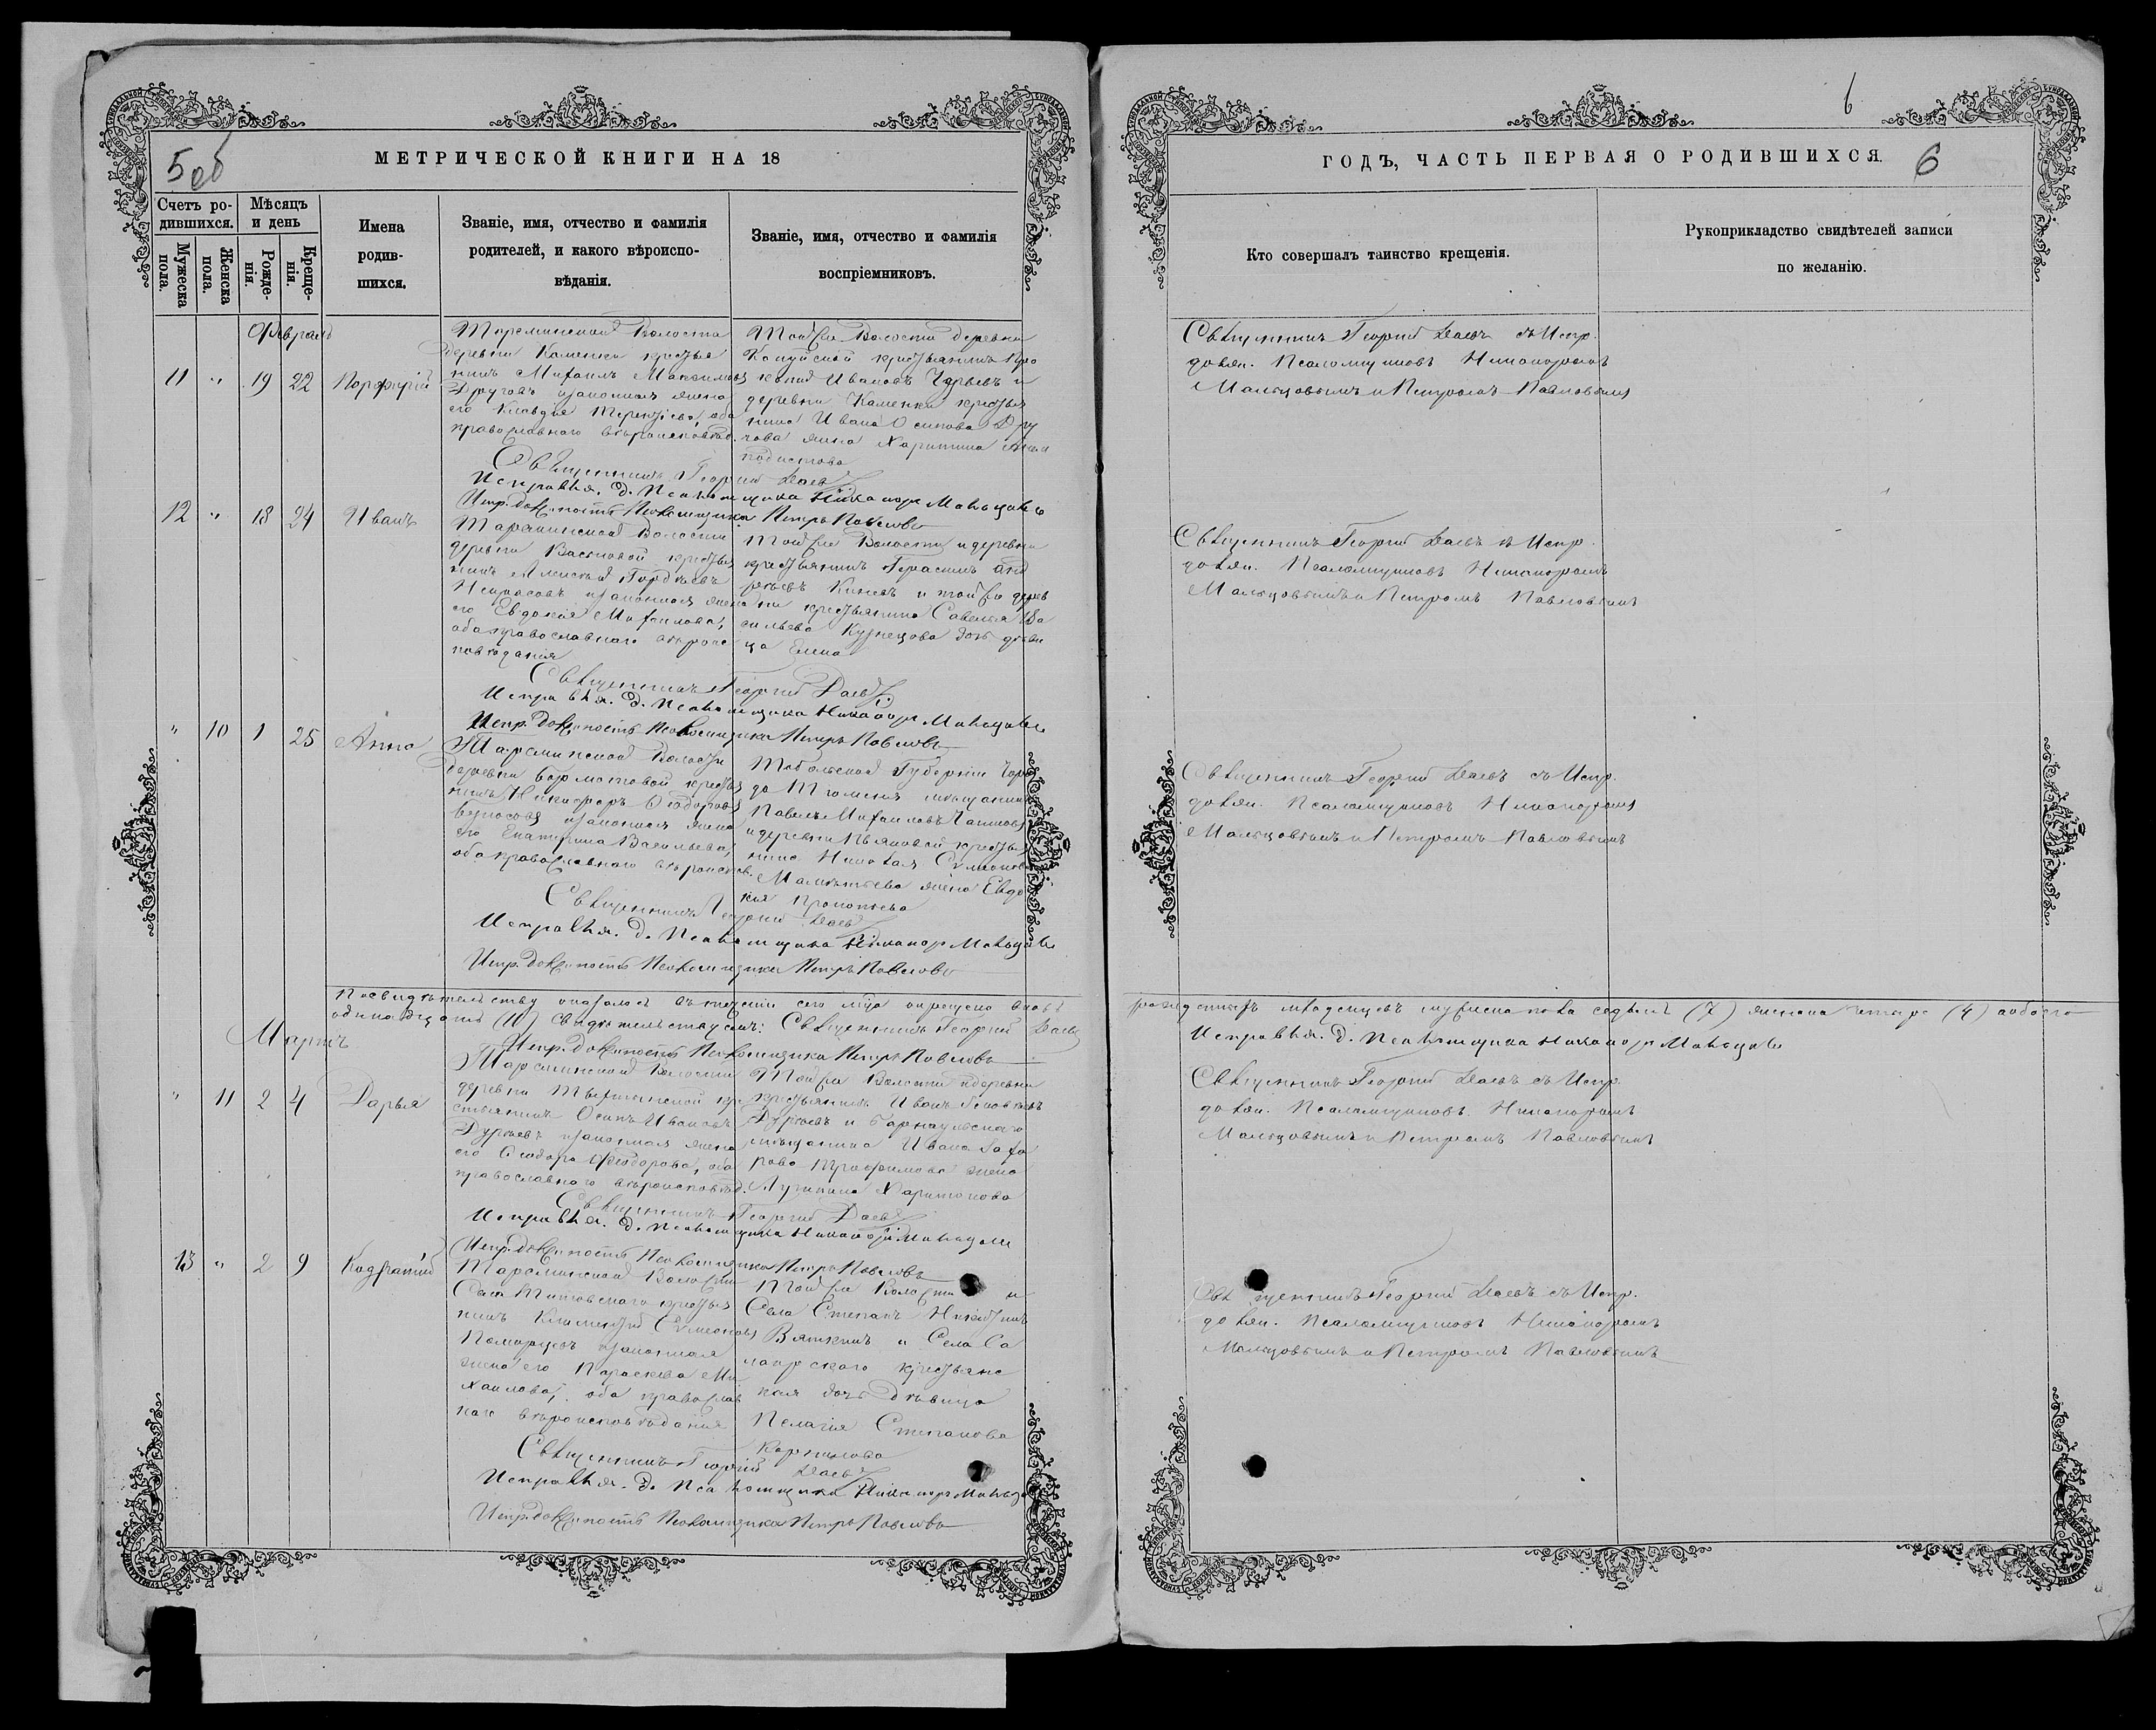 5об
МЕТРИЧЕСКОЙ КНИГИ НА 18
Счетъ ро-
дившихся.
Мѣсяцъ
и день
Мужеска
пола.
Женска
пола.
Рожде-
нія.
Креще-
нія.
Имена
родив-
шихся.
Званіе, имя, отчество и фамилія
родителей, и какого вѣроиспо-
вѣданія.
Званіе, имя, отчество и фамилія
воспріемниковъ.
Февраль
11 " 19 22 Порфирій
Тарсминской Волости
деревни Каменки крестья
нинъ Михаилъ Максимовъ
Друговъ и законная жена
его Клавдія Терентьева, оба
православнаго вѣроисповѣд.
Той же Волости деревни
крестьянинъ Про
копій Ивановъ и
деревни Каменки крестья
нина Ивана Осипова Дру
гова жена Харитина
Священникъ Георгій Даевъ
Исправля. д. Псаломщика Никаноръ Мальцовъ
Испр. должность Псаломщика Петръ Павловъ
12 " 18 24 Иванъ
Тарсминской Волости
деревни крестья
нинъ Алексѣй Гордѣевъ
и законная жена
его Евдокія Михаилова,
оба православнаго вѣроис
повѣданія
Той же Волости и деревни
крестьянинъ Герасимъ Анд
реевъ и той же дерев
ни крестьянина Савелія Ва
сильева Кузнецова дочь дѣви
ца Елена
Священникъ Георгій Даевъ
Исправля. д. Псаломщика Никаноръ Мальцовъ
Испр. должность Псаломщика Петръ Павловъ
" 10 1 25 Анна
Тарсминской Волости
деревни крестья
нинъ Никифоръ Ѳедоровъ
и законная жена
его Екатерина Васильева,
оба православнаго вѣроисповѣд.
Тобольской Губерніи горо
да Тюменя мѣщанинъ
Павелъ Михаиловъ
и деревни крестья
нина Николая Симеонова
жена Евдо
кія Прокопьева
Священникъ Георгій Даевъ
Исправля. д. Псаломщика Никаноръ Мальцовъ
Испр. должность Псаломщика Петръ Павловъ
По свидѣтельству оказалось въ теченіи сего мѣца окрещено вновь
одинадцать (11) свидѣтельствуемъ: Священникъ Георгій Даевъ
Испр. должность Псаломщика Петръ Павловъ
Мартъ
" 11 2 4 Дарья
Тарсминской Волости
деревни кре
стьянинъ Осипъ Ивановъ
и законная жена
его Ѳеодора Ѳеодорова, оба
православнаго вѣроисповѣд.
Той же Волости и деревни
крестьянинъ Иванъ
и Барнаульскаго
мѣщанина Ивана Заха
рова Трофимова жена
Харитонова
Священникъ Георгій Даевъ
Исправля. д. Псаломщика Никаноръ Мальцовъ
Испр. должность Псаломщика Петръ Павловъ
13 " 2 9 Кодратій
Тарсминской Волости
Села Титовскаго крестья
нинъ Климентій Симеоновъ
и законная
жена его Параскева Ми
хаилова, оба православ
наго вѣроисповѣданія
Той же Волости и
Села Степанъ Никитинъ
Вяткинъ и Села Са
лаирскаго крестьянс
кая дочь дѣвица
Пелагія Степанова
Корнилова
Священникъ Георгій Даевъ
Исправля. д. Псаломщика Никаноръ Мальцовъ
Испр. должность Псаломщика Петръ Павловъ
6
ГОДЪ, ЧАСТЬ ПЕРВАЯ О РОДИВШИХСЯ.
6
Кто совершалъ таинство крещенія.
Рукоприкладство свидѣтелей записи
по желанію.
Священникъ Георгій Даевъ съ Испр.
должн. Псаломщиковъ Никаноромъ
Мальцовымъ и Петромъ Павловымъ
Священникъ Георгій Даевъ съ Испр.
должн. Псаломщиковъ Никаноромъ
Мальцовымъ и Петромъ Павловымъ
Священникъ Георгій Даевъ съ Испр.
должн. Псаломщиковъ Никаноромъ
Мальцовымъ и Петромъ Павловымъ
рожденныхъ младенцевъ мужеска пола седьмь (7) женска четыре (4) а обоего
Исправля. д. Псаломщика Никаноръ Мальцовъ
Священникъ Георгій Даевъ съ Испр.
должн. Псаломщиковъ Никаноромъ
Мальцовымъ и Петромъ Павловымъ
Священникъ Георгій Даевъ съ Испр.
должн. Псаломщиковъ Никаноромъ
Мальцовымъ и Петромъ Павловымъ